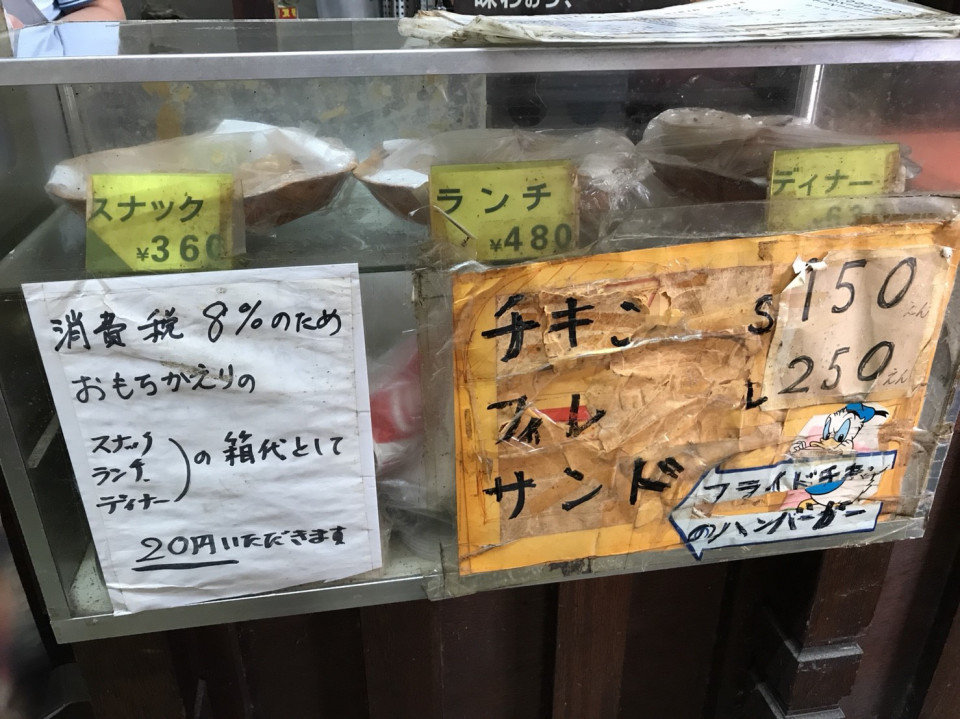 味わおう、
スナック
¥360
ランチ
¥480
ディナー
¥630
消費税 8%のため
おもちかえりの
スナック
ランチ
ディナー
の箱代として
20円いただきます
チキン S 150えん
フィレ L 250えん
サンド
フライドチキン
のハンバーガー